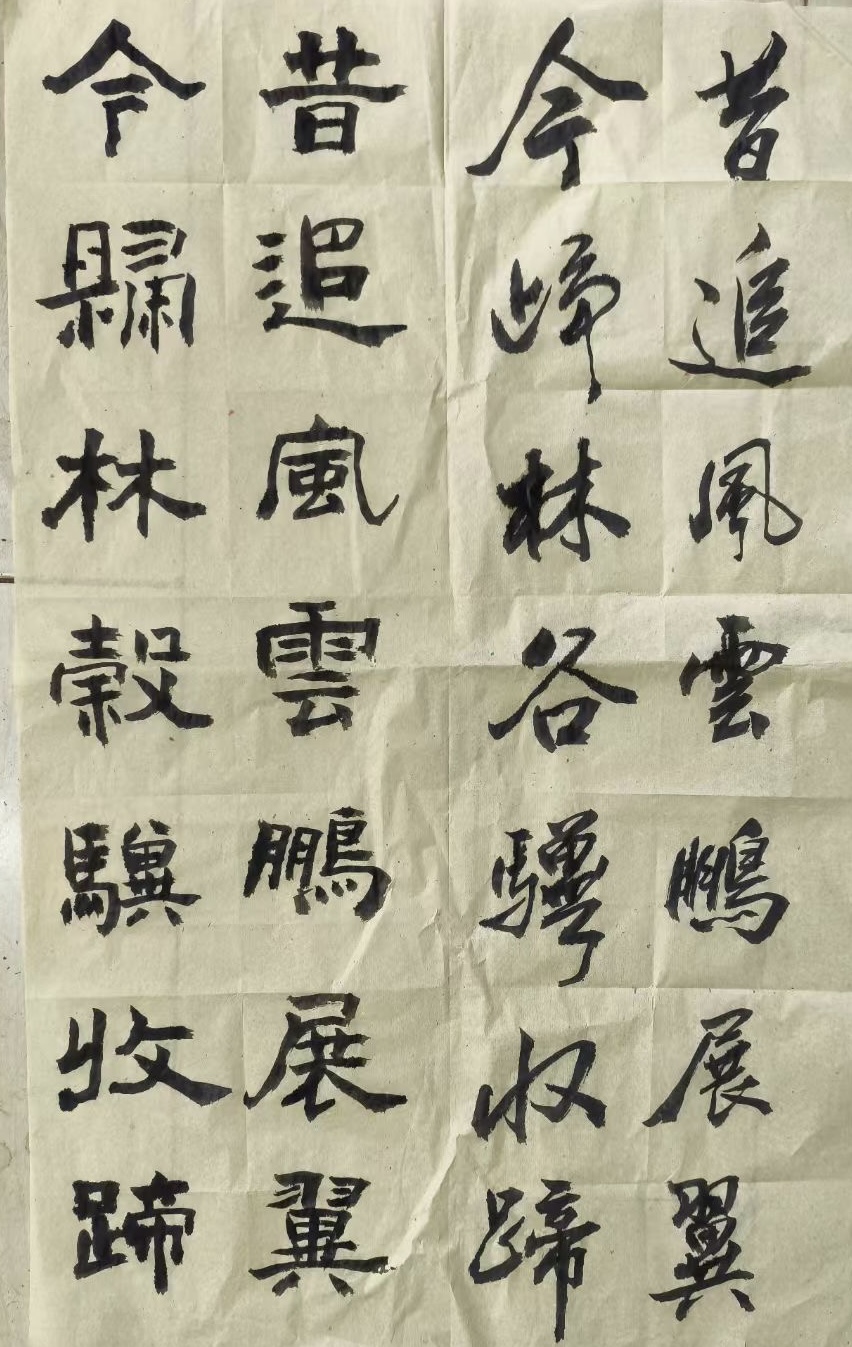 昔追風雲鵬展翼
今歸林谷驥收蹄
昔追風雲鵬展翼
今歸林穀驥收蹄